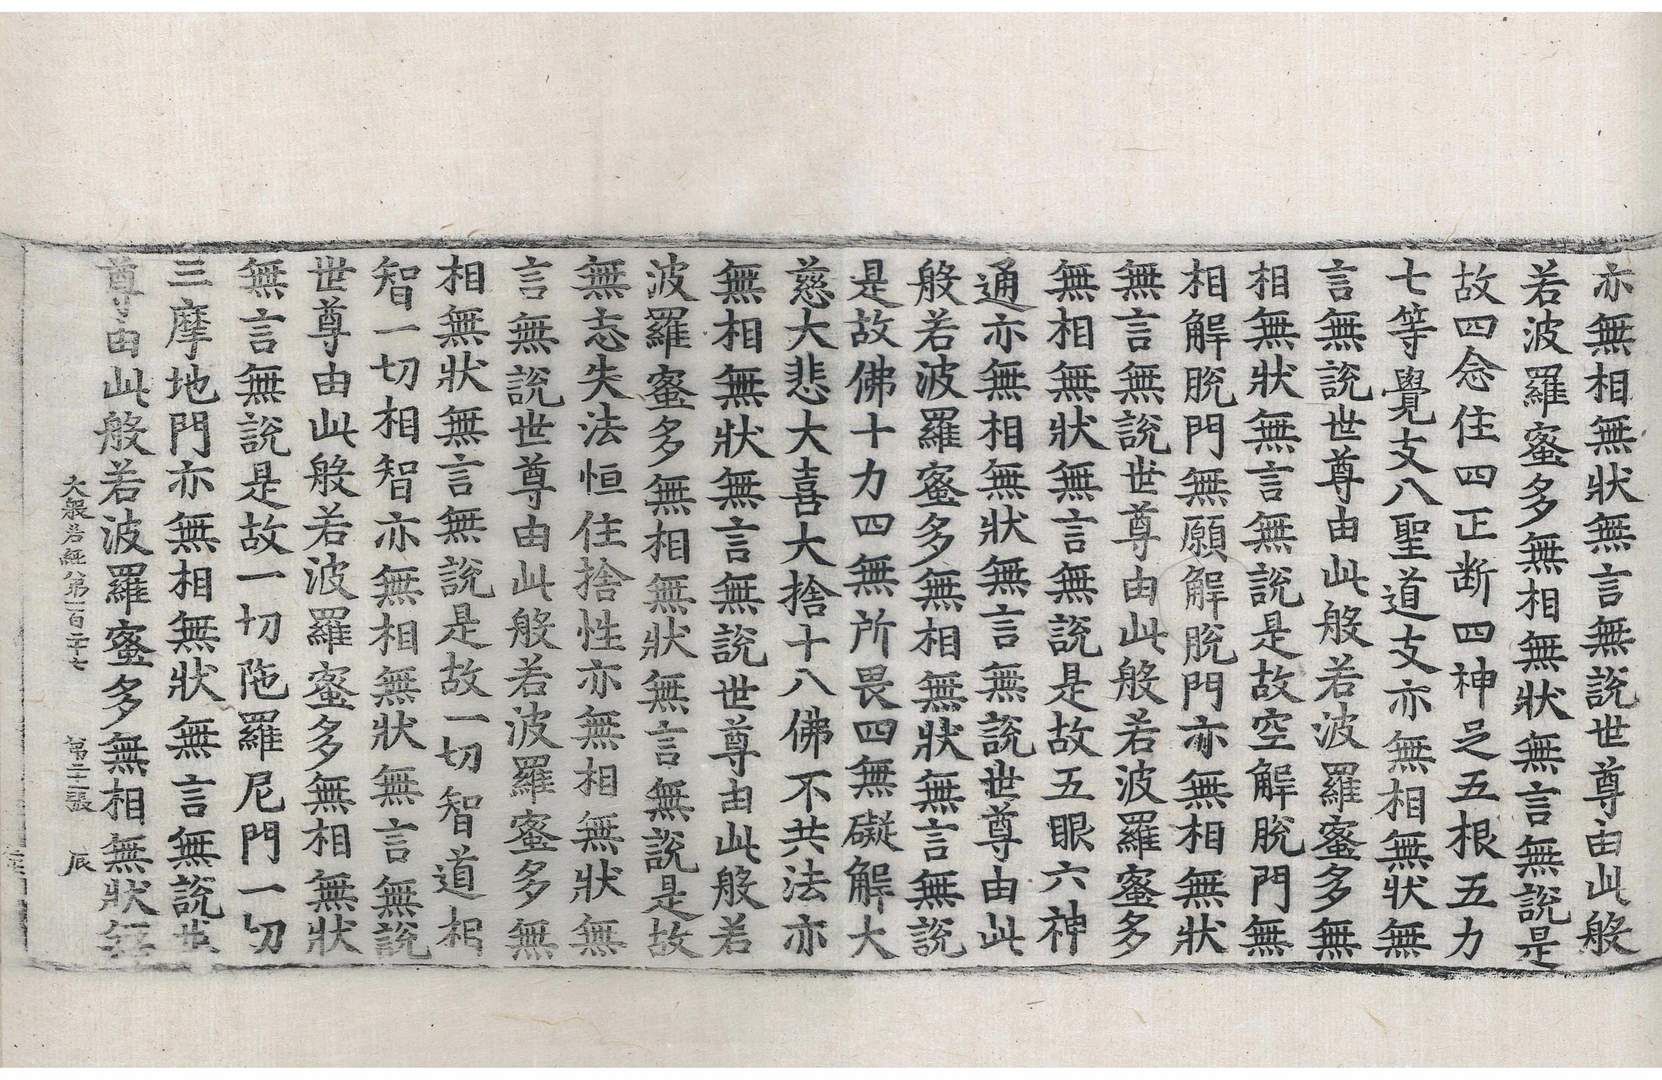 亦無相無狀無言無說世尊由此般
若波羅蜜多無相無狀無言無說是
故四念住四正断四神足五根五力
七等覺支八聖道支亦無相無狀無
言無說世尊由此般若波羅蜜多無
相無狀無言無說是故空解脫門無
相解脫門無願解脫門亦無相無狀
無言無說世尊由此般若波羅蜜多
無相無狀無言無說是故五眼六神
通亦無相無狀無言無說世尊由此
般若波羅蜜多無相無狀無言無說
是故佛十力四無所畏四無礙解大
慈大悲大喜大捨十八佛不共法亦
無相無狀無言無說世尊由此般若
波羅蜜多無相無狀無言無說是故
無忘失法恒住捨性亦無相無狀無
言無說世尊由此般若波羅蜜多無
相無狀無言無說是故一切智道相
智一切相智亦無相無狀無言無說
世尊由此般若波羅蜜多無相無狀
無言無說是故一切陁羅尼門一切
三摩地門亦無相無狀無言無說世
尊由此般若波羅蜜多無相無狀無
大般若經第一百二十七 第二十二張 辰